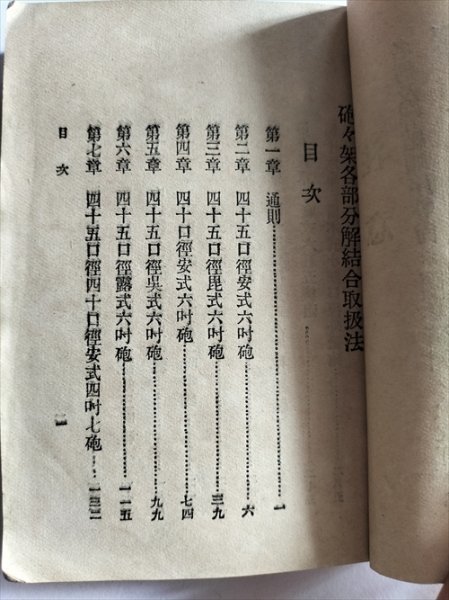 砲々架各部分解結合取扱法
目次
第一章 通則……一
第二章 四十五口徑安式六吋砲……六
第三章 四十五口徑毘式六吋砲……三九
第四章 四十口徑安式六吋砲……七四
第五章 四十五口徑吳式六吋砲……九九
第六章 四十五口徑露式六吋砲……一一五
第七章 四十五口徑四十口徑安式四吋七砲……一三二
目次